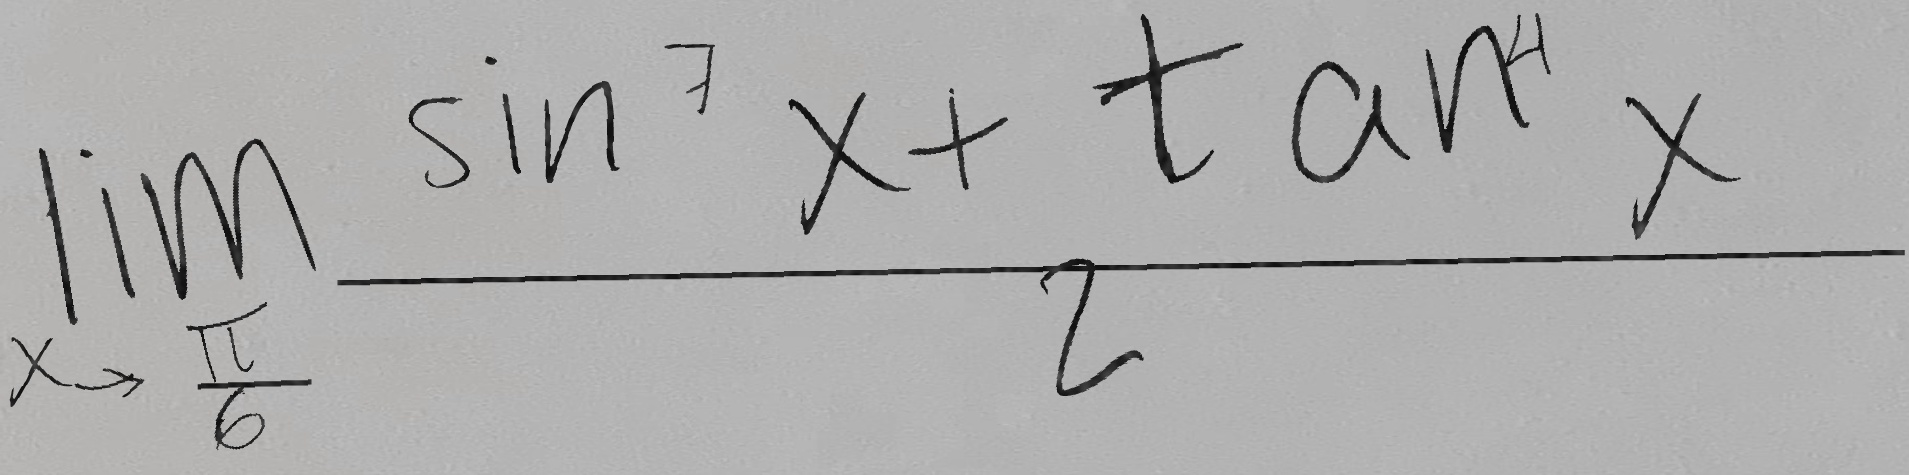 \lim_{x \to \frac{\pi}{6}} \frac{\sin^7 x + \tan^4 x}{2}